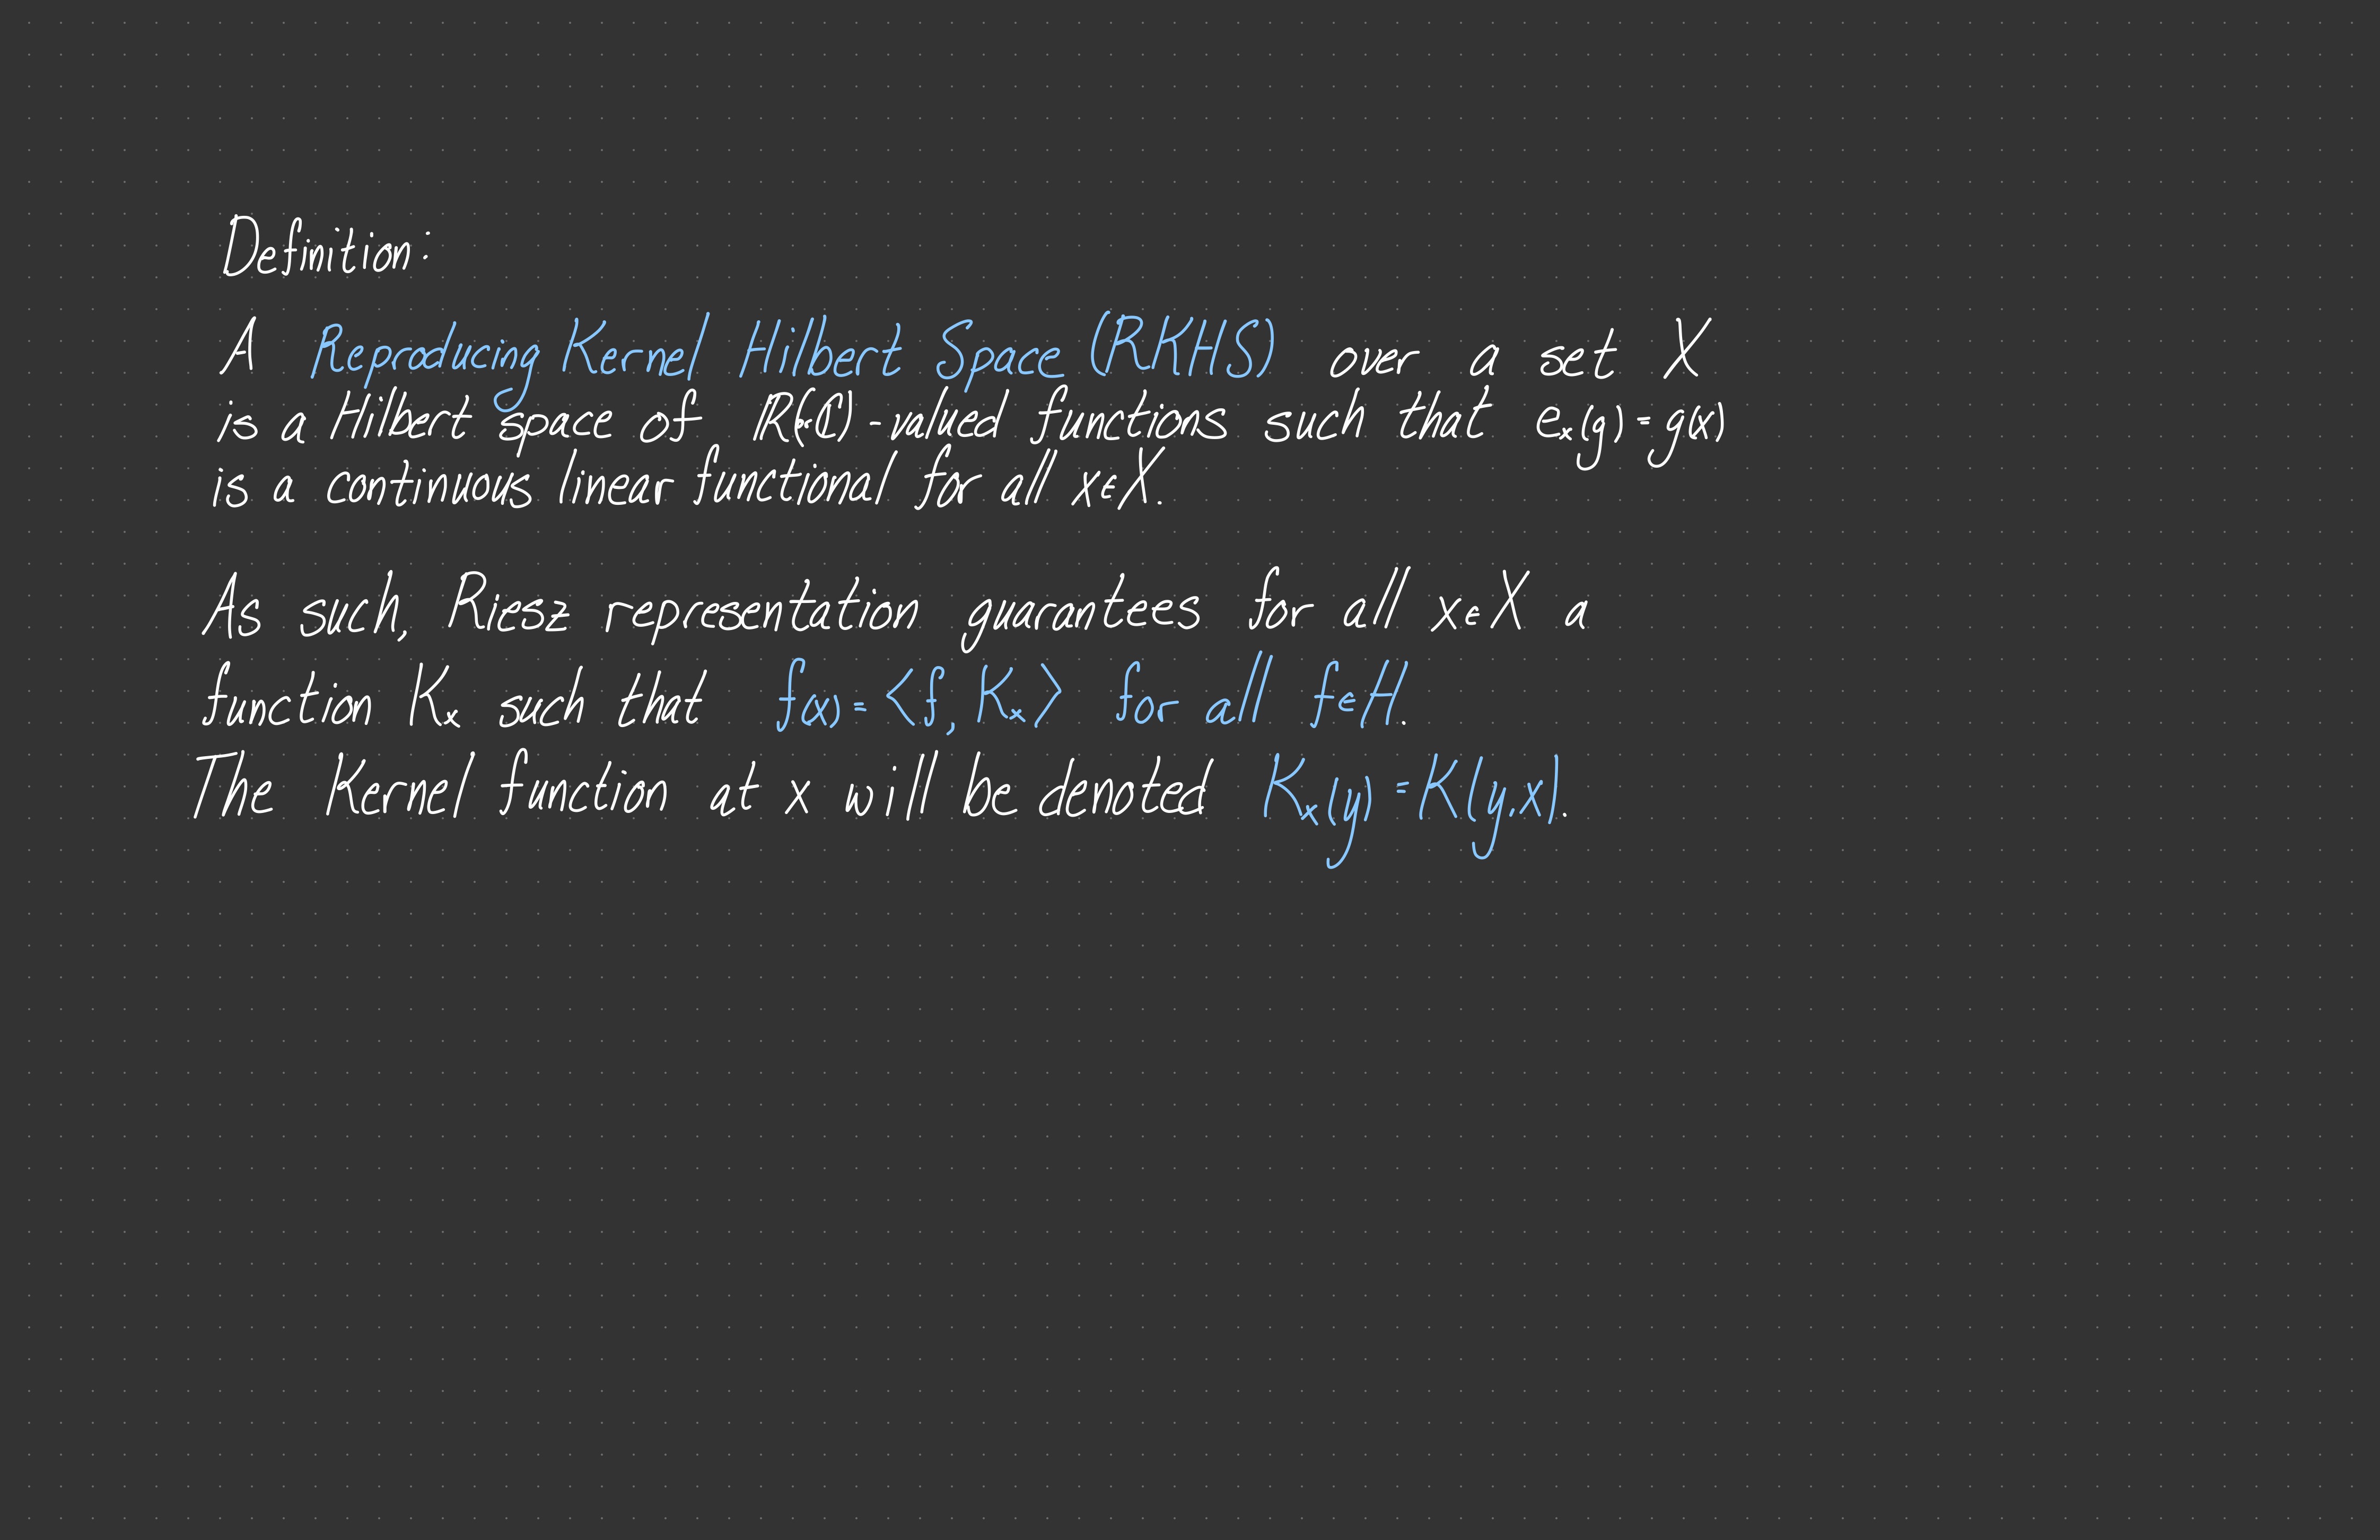 Definition:
A Reproducing Kernel Hilbert Space (RKHS) over a set X
is a Hilbert space of ℝ(or ℂ)-valued functions such that eₓ(g)=g(x)
is a continuous linear functional for all x∈X.
As such, Riesz representation guarantees for all x∈X a
function Kₓ such that f(x)=<f, Kₓ> for all f∈H.
The Kernel function at x will be denoted Kₓ(y)=K(y,x).